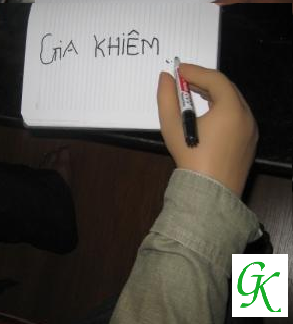 GiA KHiÊM
GK